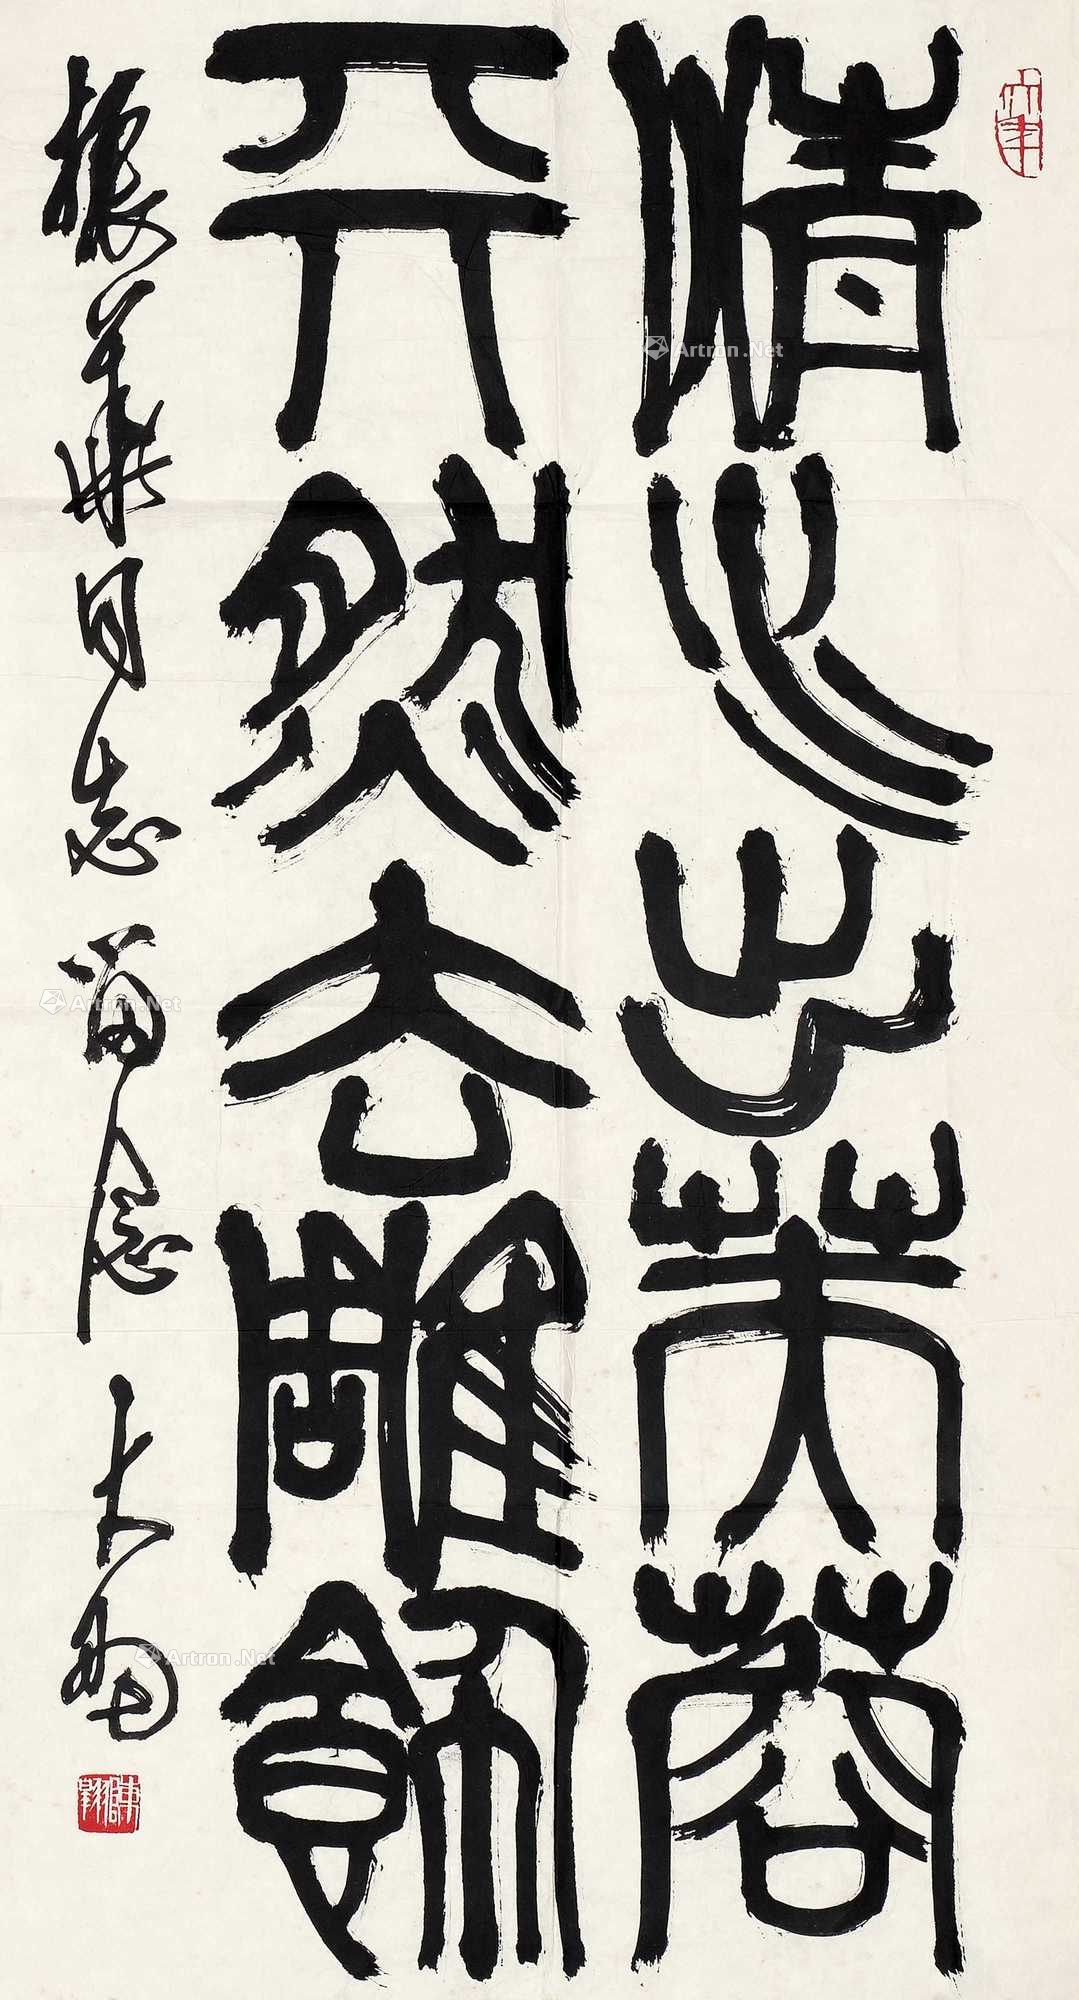 清水出芙蓉
天然去雕飾
同志 留念 大羽
Artron.Net
Artron.Net
Artron.Net